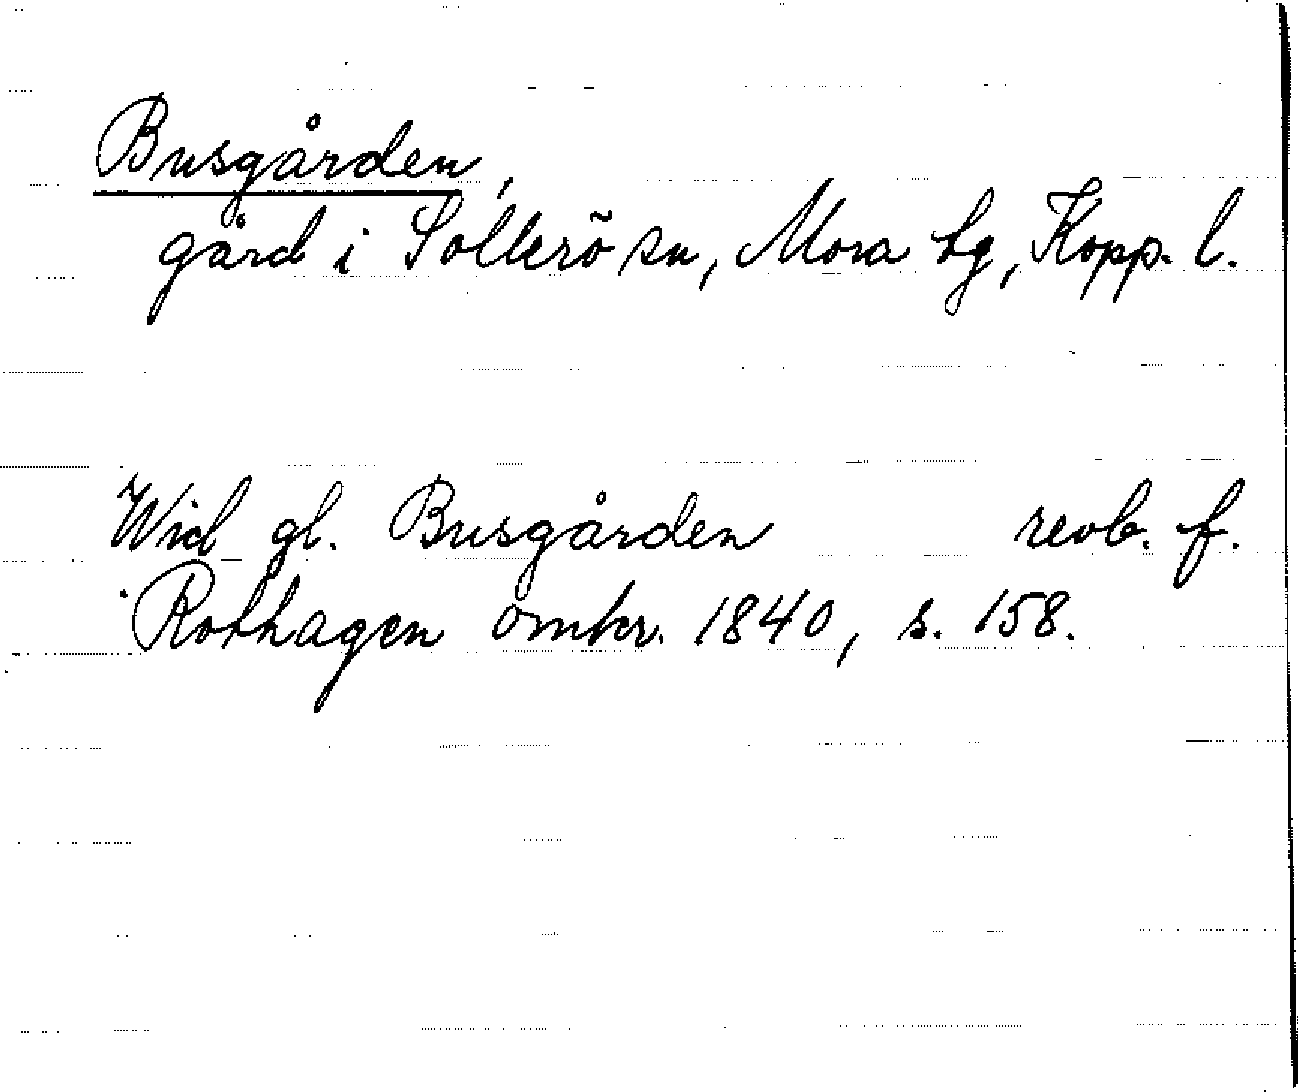 Busgården,
gård i Sollerö sn, Mora tg, Kopp. l.
Wid gl. Busgården revb. f.
Rothagen omkr. 1840, s. 158.